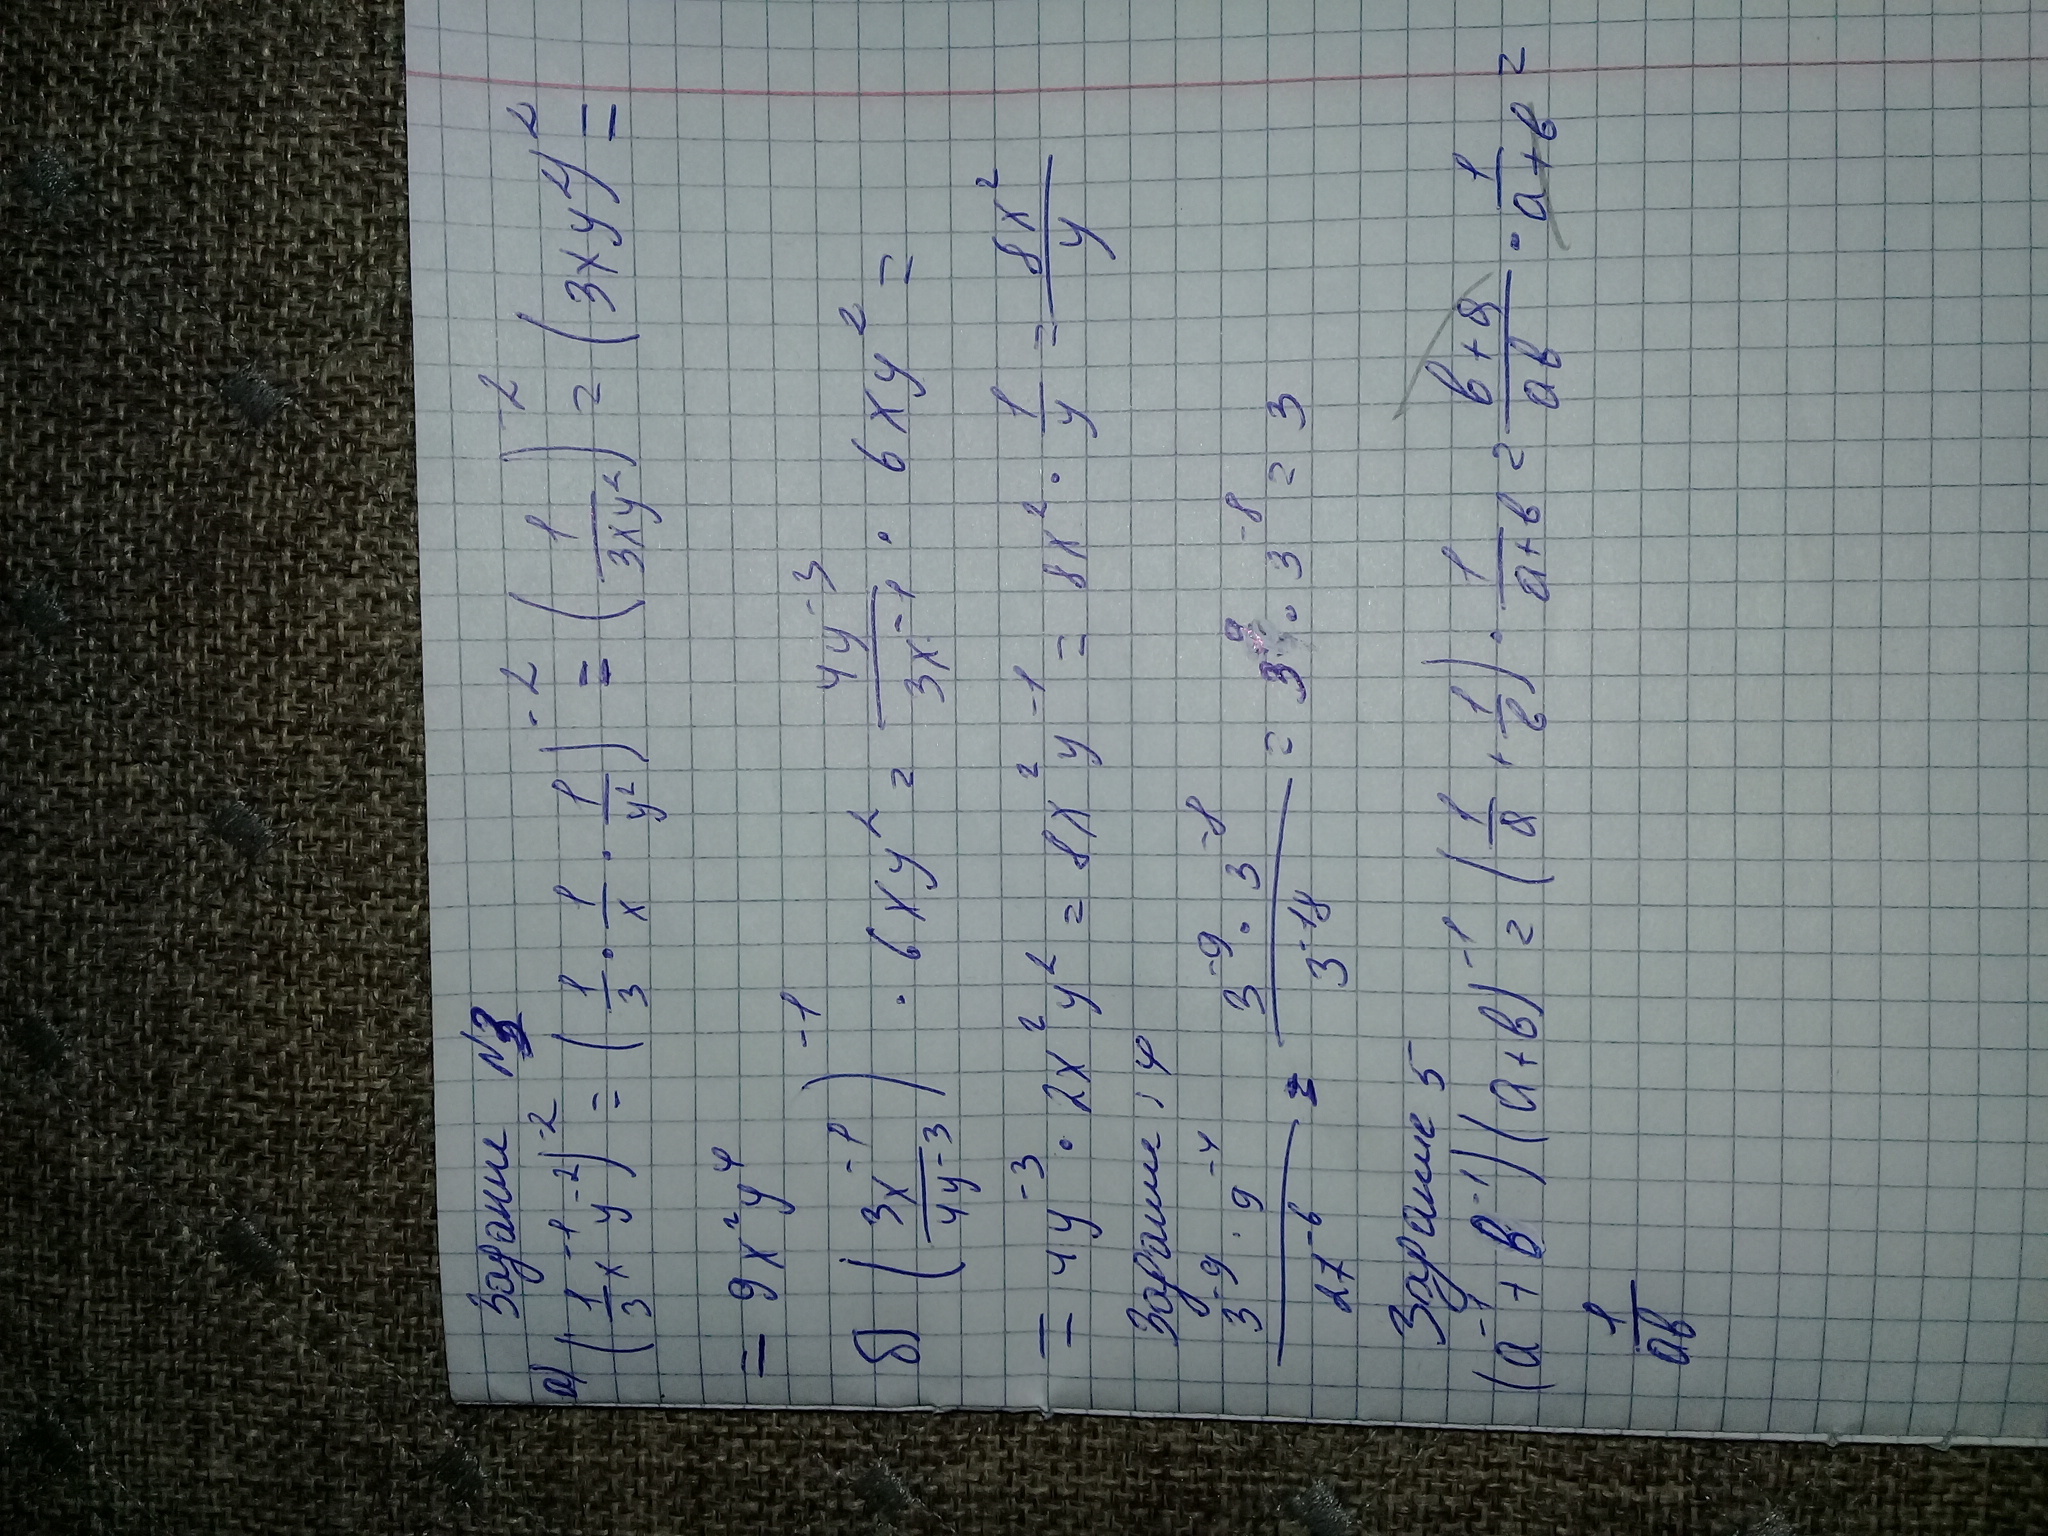 Задание №3
а) (1/3 x⁻¹ y⁻²)⁻² = (1/3 · 1/x · 1/y²)⁻² = (1/(3xy²))⁻² = (3xy²)² =
= 9x²y⁴
б) (3x⁻¹/4y⁻³)⁻¹ · 6xy² = 4y⁻³/3x⁻¹ · 6xy² =
= 4y⁻³ · 2x²y² = 8x²y⁻¹ = 8x² · 1/y = 8x²/y
Задание 4
3⁻⁹ · 9⁻⁴ / 27⁻⁶ = 3⁻⁹ · 3⁻⁸ / 3⁻¹⁸ = 3⁹ · 3⁻⁸ = 3
Задание 5
(a⁻¹ + в⁻¹)(a+в)⁻¹ = (1/a + 1/в) · 1/(a+в) = (в+a)/aв · 1/(a+в) =
1/aв